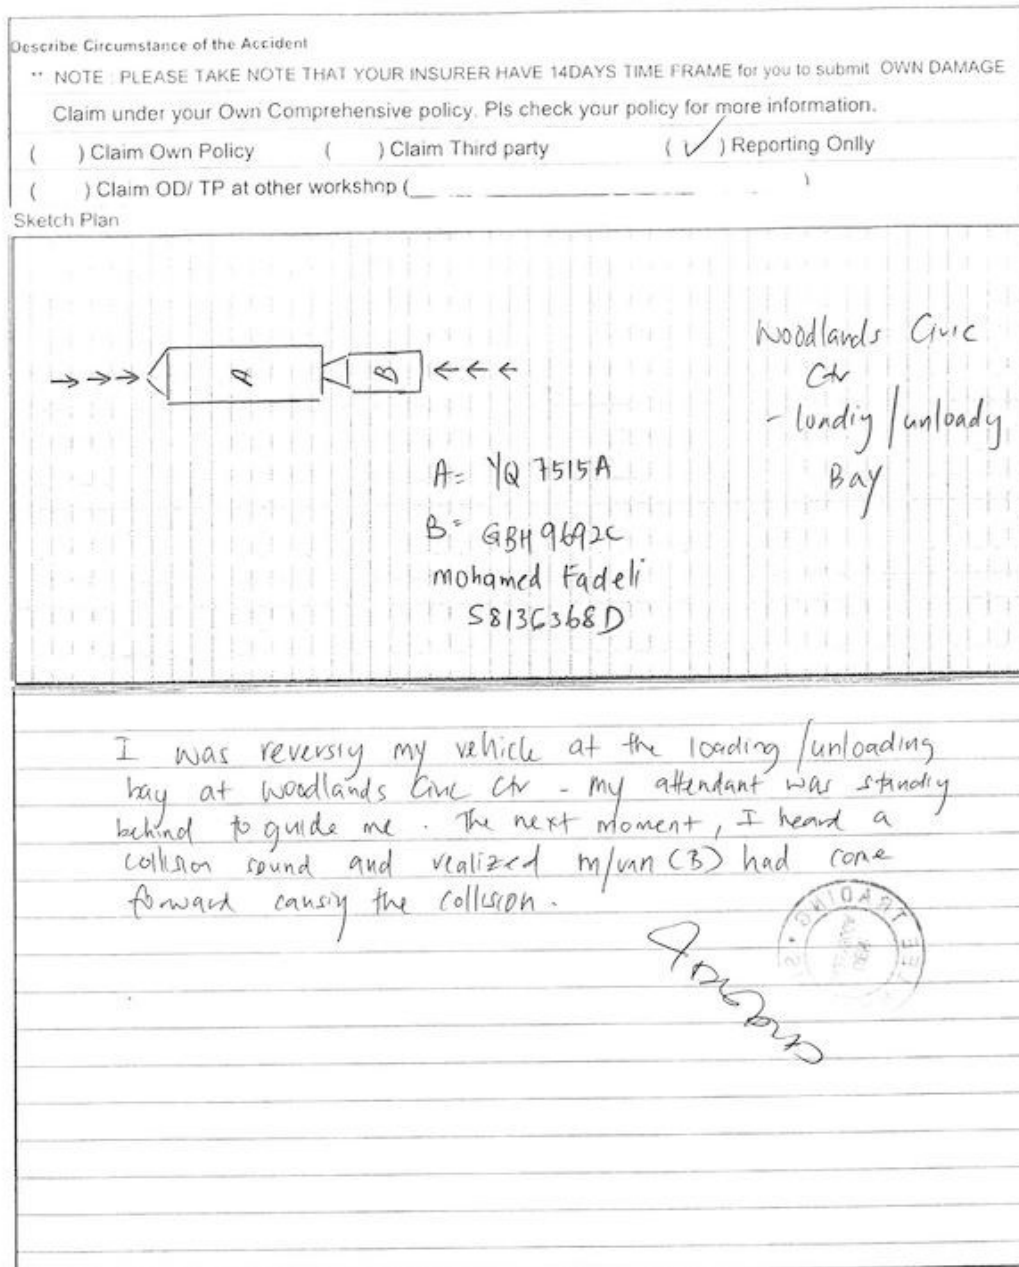 Describe Circumstance of the Accident
** NOTE : PLEASE TAKE NOTE THAT YOUR INSURER HAVE 14DAYS TIME FRAME for you to submit OWN DAMAGE
Claim under your Own Comprehensive policy. Pls check your policy for more information.
( ) Claim Own Policy ( ) Claim Third party ( ✓ ) Reporting Onlly
( ) Claim OD/ TP at other workshop ( )
Sketch Plan
Woodlands Civic
Ctr
- loading /unloady
Bay
A
B
A= YQ 7515A
B= GBH 9692C
mohamed Fadeli
I was reversiy my vehicle at the loading /unloading
bay at Woodlands Civic Ctr - my attendant was standiy
behind to guide me. The next moment, I heard a
collision sound and realized m/van (B) had come
forward causiy the collision.
TRADING